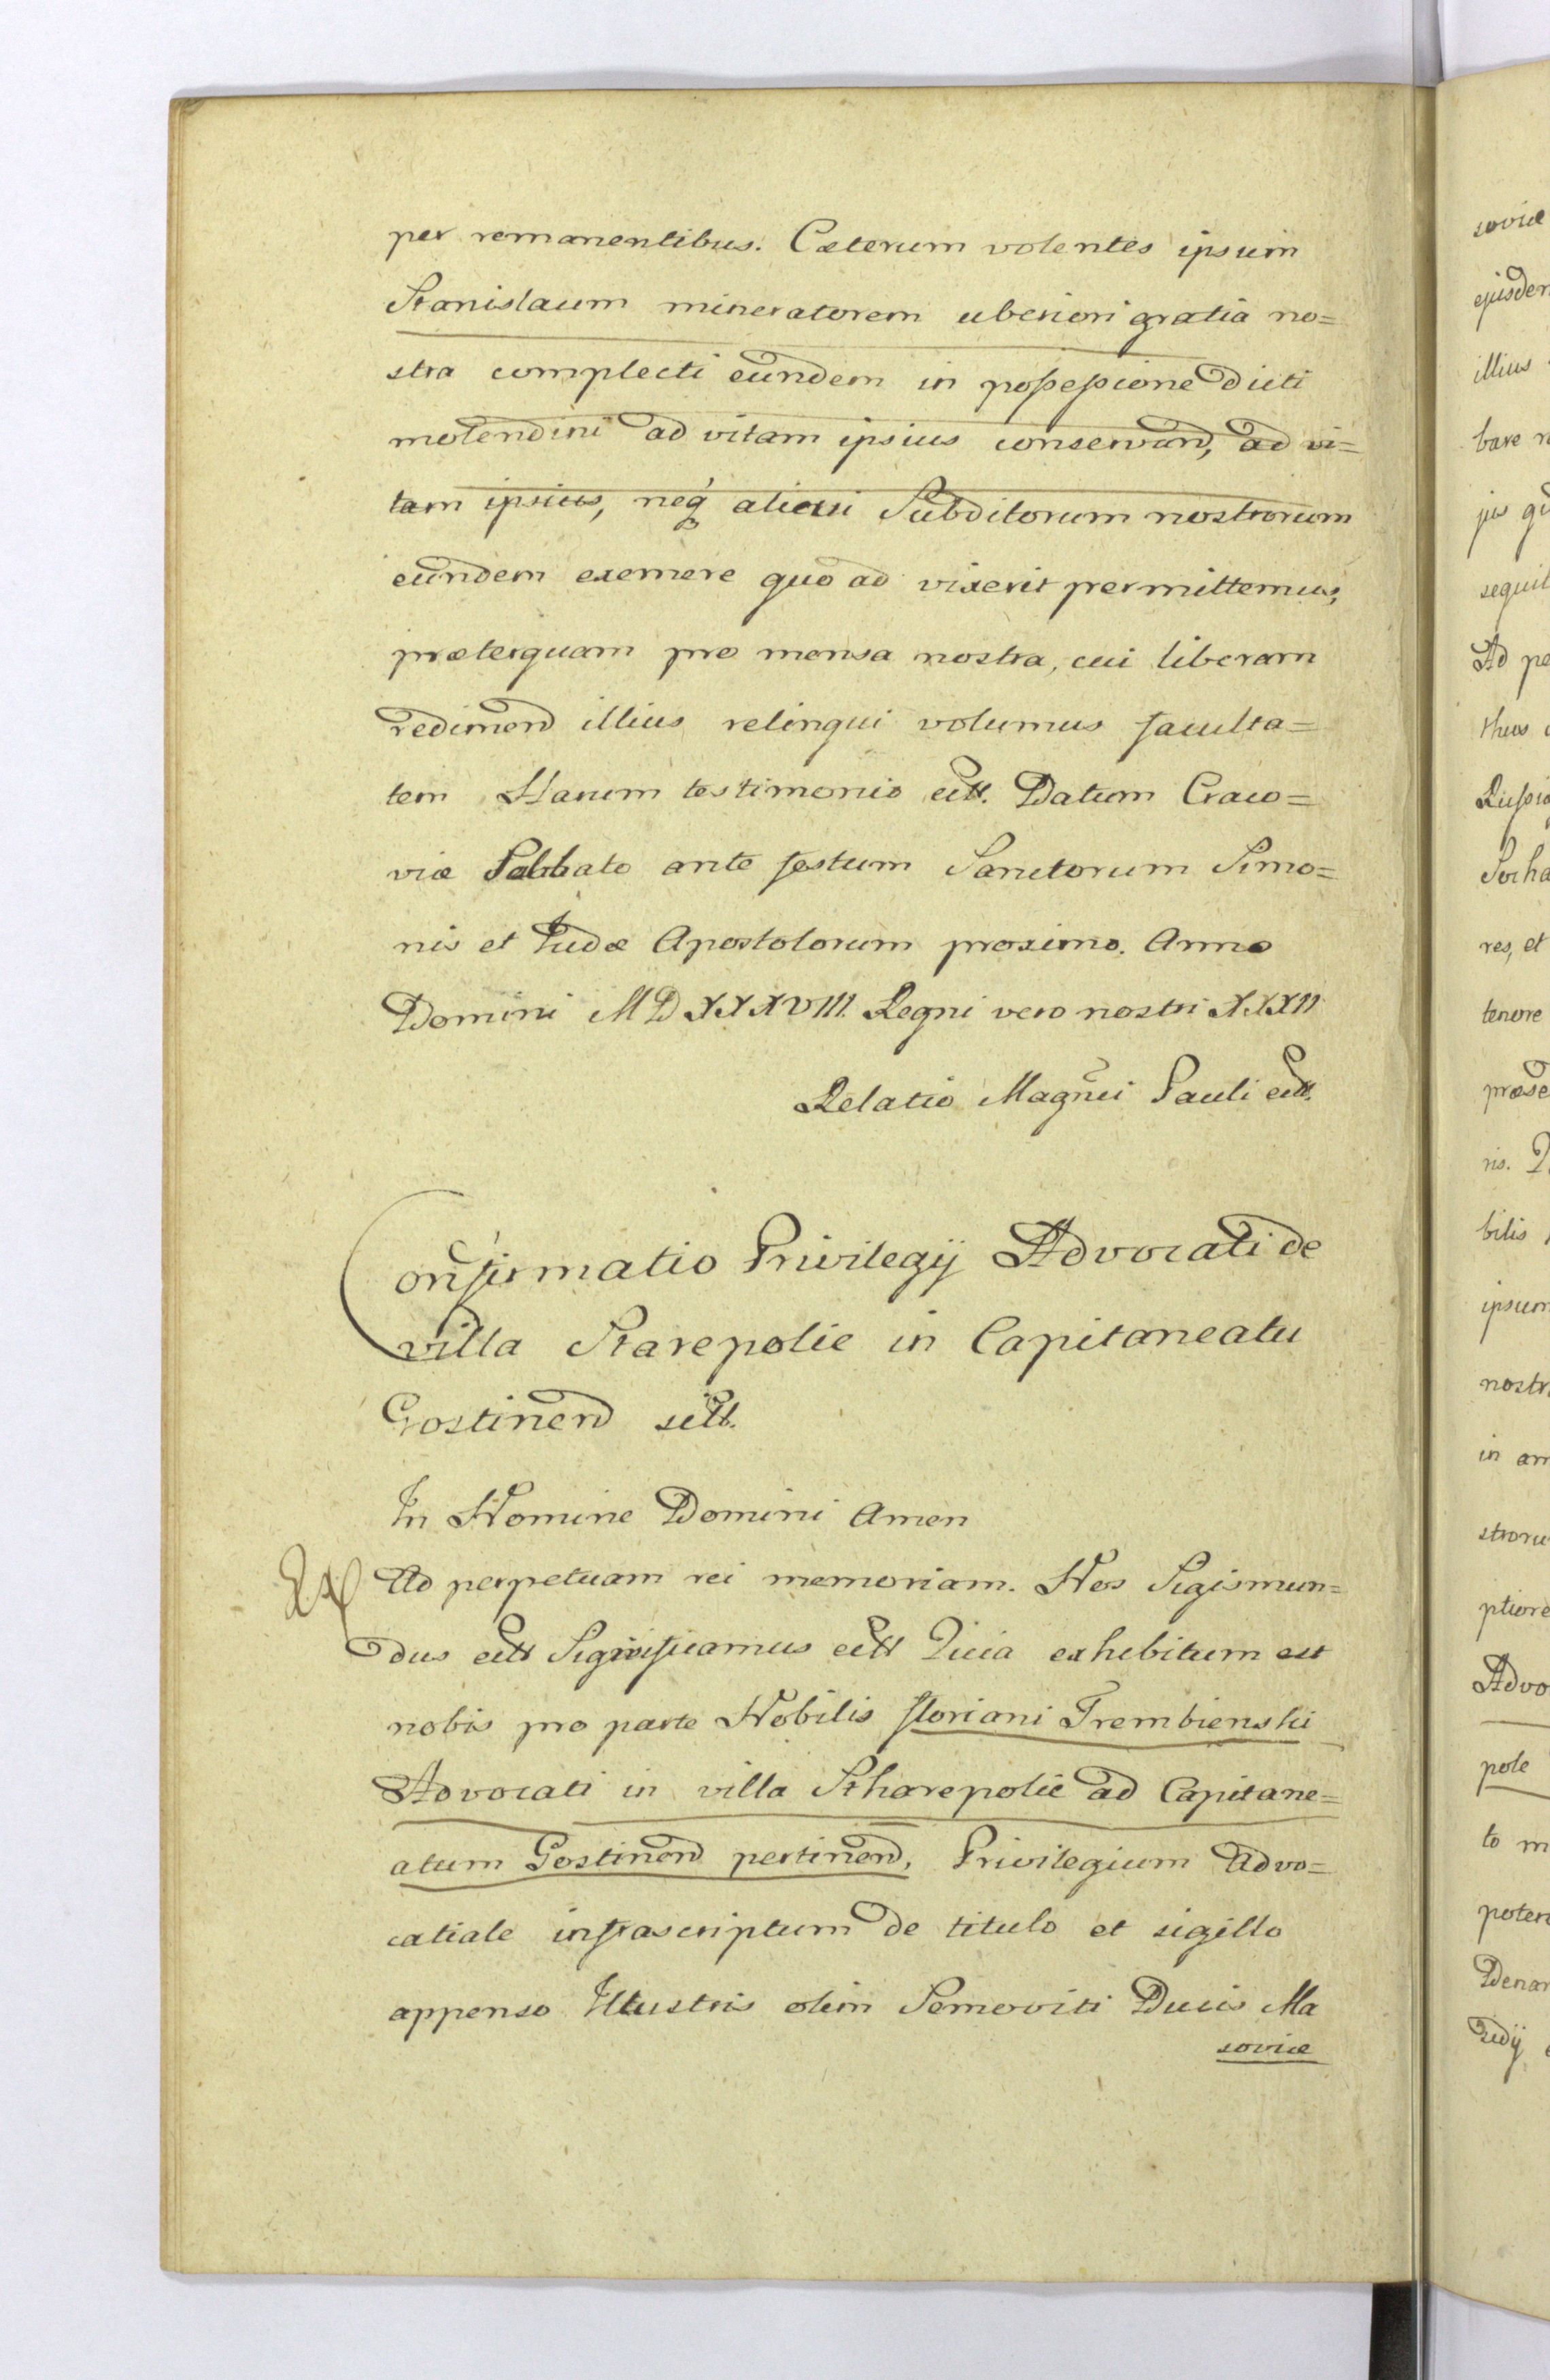 per remanentibus. Cæterum volentes ipsum
Stanislaum mineratorem uberiori gratia no=
stra complecti eundem in possessione dicti
molendini ad vitam ipsius conservand, ad vi=
tam ipsius, neq alicui Subditorum nostrorum
eundem exemere quo ad vixerit permittemus,
præterquam pro mensa nostra, cui liberam
redimend illius relinqui volumus faculta=
tem Harum testimonio ett. Datum Craco=
viæ Sabbato ante festum Sanctorum Simo=
nis et Judæ Apostolorum proximo. Anno
Domini MDXXXVIII. Regni vero nostri XXXII
Relatio Magnci Pauli ett.
Confirmatio Privilegij Advocati de
villa Starepolie in Capitaneatu
Gostinend sitt.
In Nomine Domini Amen
Ad perpetuam rei memoriam. Nos Sigismun=
dus ett Significamus ett Quia exhebitum est
nobis pro parte Nobilis floriani Trembienski
Advocati in villa Stharepolie ad Capitane=
atum Gostinend pertinend, Privilegium Advo=
catiale infrascriptum de titulo et sigillo
appenso Illustris olim Semoviti Ducis Ma
soviæ
soviæ
ejusdem
illius
bare
sequit
Ad pe
res, et
tenore
præse
ris.
bilis
ipsum
nostr
in am
stroru
ptiore
Advo
pole
to m
poten
Denar